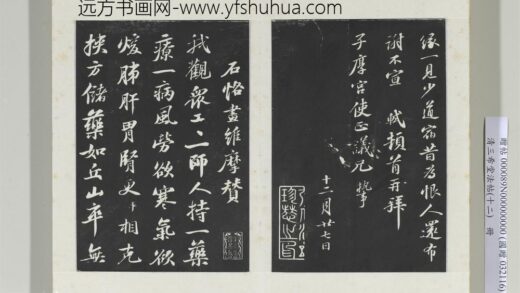 远方书画网-www.yfshuhua.com
缘一見少道宿昔為恨人還布
謝不宣 軾頓首再拜
子厚宮使正議兄執事
十二月廿七日
石恪畫維摩贊
我觀衆工工一師人持一藥
療一病風勞欲寒氣欲
煖肺肝胃腎更相克
挾方儲藥如丘山卒無
贈帖 000089N000000000
清三希堂法帖(十二) 冊